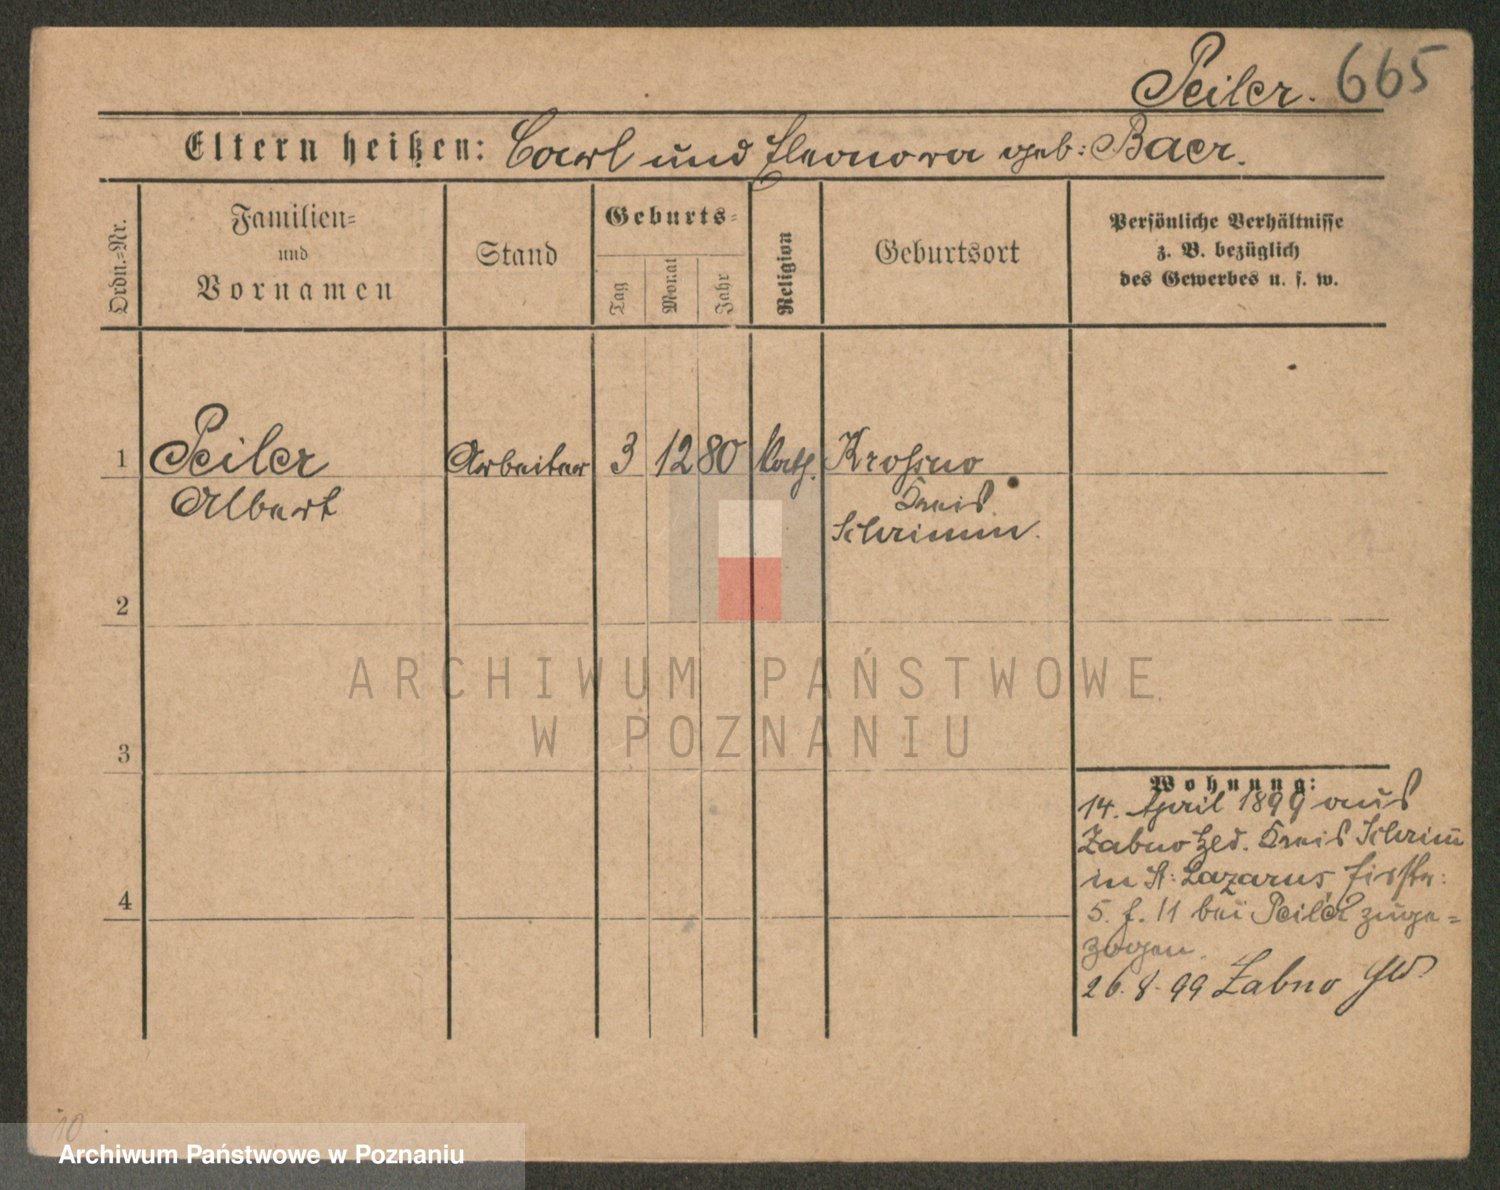 Peiler. 665
Eltern heißen: Carl und Eleonora geb: Baer.
Ordn.=Nr.
Familien=
und
Vornamen
Stand
Geburts=
Tag
Monat
Jahr
Religion
Geburtsort
Persönliche Verhältnisse
z. B. bezüglich
des Gewerbes u. s. w.
1 Peiler Arbeiter 3 12 80 kath. Krossno
Albert Kreis
Schrimm.
2
3
4
Wohnung:
14. April 1899 aus
Zabno Kreis Schrim̄
in St: Lazarus,
5. f. 11 bei Peiler zuge=
zogen.
26. 8. 99 Zabno
10
ARCHIWUM PAŃSTWOWE
W POZNANIU
Archiwum Państwowe w Poznaniu